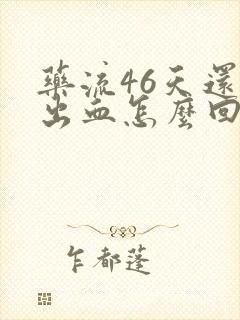 藥流46天還
出血怎麼回
乍都蓬